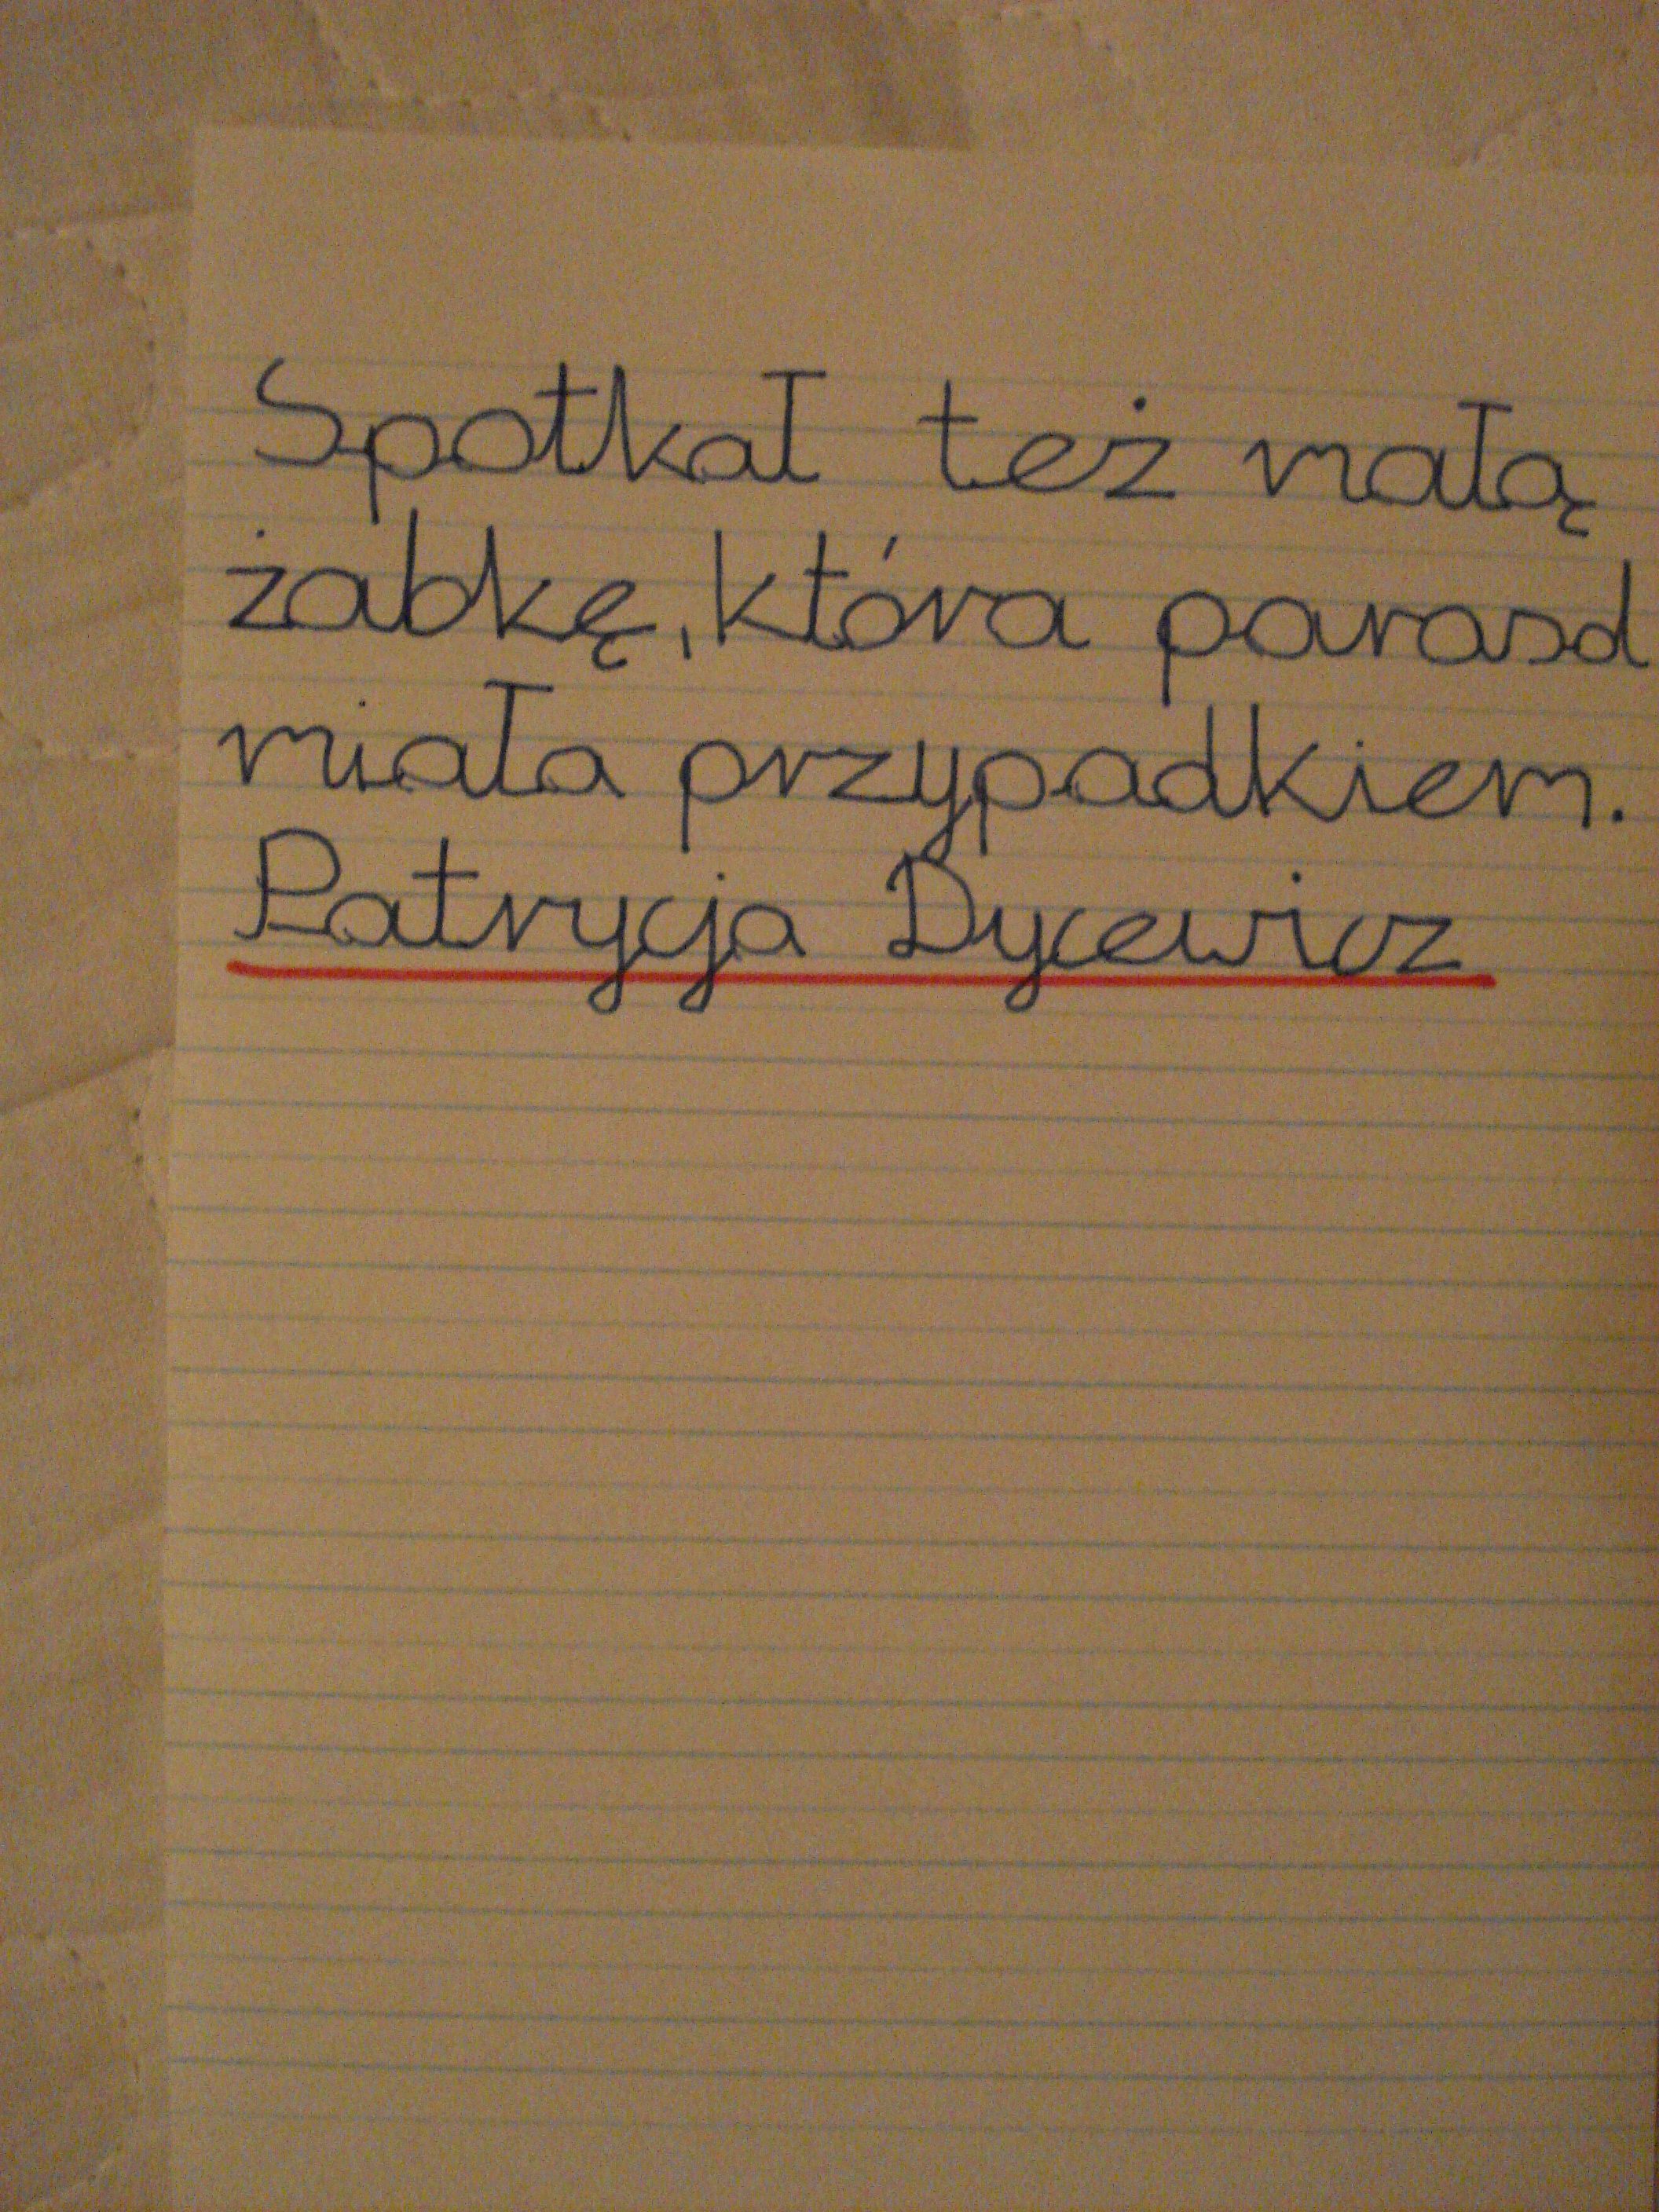 Spotkał też małą
żabkę, która parasol
miała przypadkiem.
Patrycja Dycewicz